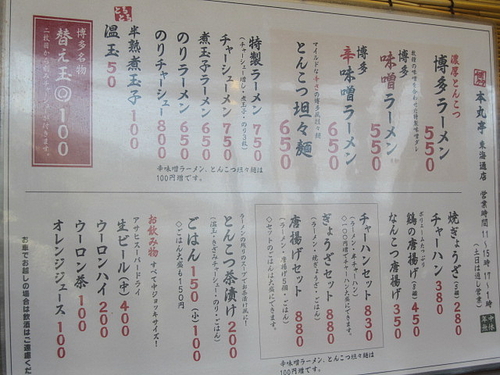 本丸亭 東海通店
営業時間 11〜15時 17〜 時
土日は通し営業
年中無休
濃厚とんこつ
博多ラーメン 550
博多
味噌ラーメン 550
博多
辛味噌ラーメン 650
とんこつ坦々麺 650
特製ラーメン 750
チャーシューメン 750
煮玉子ラーメン 650
のりラーメン 650
のりチャーシュー 800
辛味噌ラーメン、とんこつ坦々麺は
100円増です。
半熟煮玉子 100
温玉 50
博多名物
替え玉◎100
焼ぎょうざ 280
チャーハン 380
鶏の唐揚げ 450
なんこつ唐揚げ 350
チャーハンセット 830
(ラーメン・半チャーハン)
ぎょうざセット 880
(ラーメン・焼ぎょうざ・ごはん)
唐揚げセット 880
(ラーメン・唐揚げ5個・ごはん)
◇セットのごはんは大盛にできます。
辛味噌ラーメン、とんこつ坦々麺は
100円増です。
とんこつ茶漬け 200
ごはん 150 (小)100
◇ごはん大盛も150円
お飲み物 すべて中ジョッキサイズ!
アサヒスーパードライ
生ビール(中) 400
ウーロンハイ 200
ウーロン茶 100
オレンジジュース 100
お車でお越しの場合は飲酒はご遠慮くだ